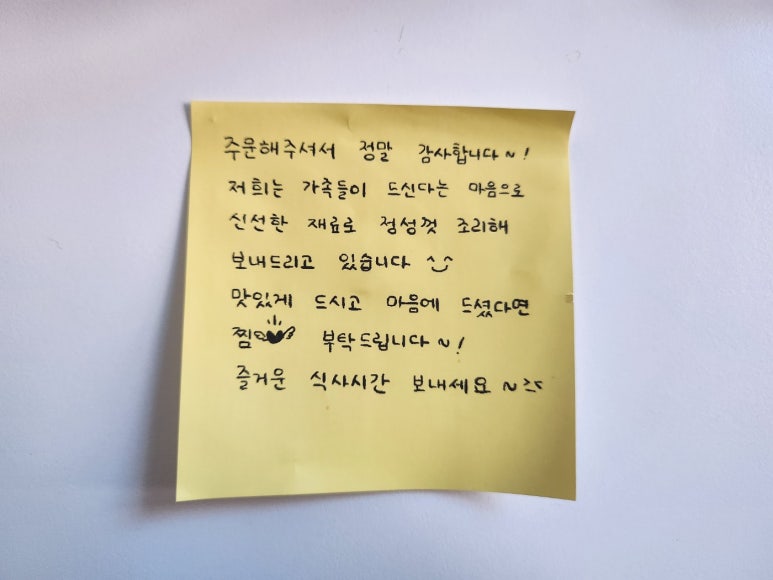 주문해주셔서 정말 감사합니다~!
저희는 가족들이 드신다는 마음으로
신선한 재료로 정성껏 조리해
보내드리고 있습니다 ^^
맛있게 드시고 마음에 드셨다면
찜 부탁드립니다~!
즐거운 식사시간 보내세요~